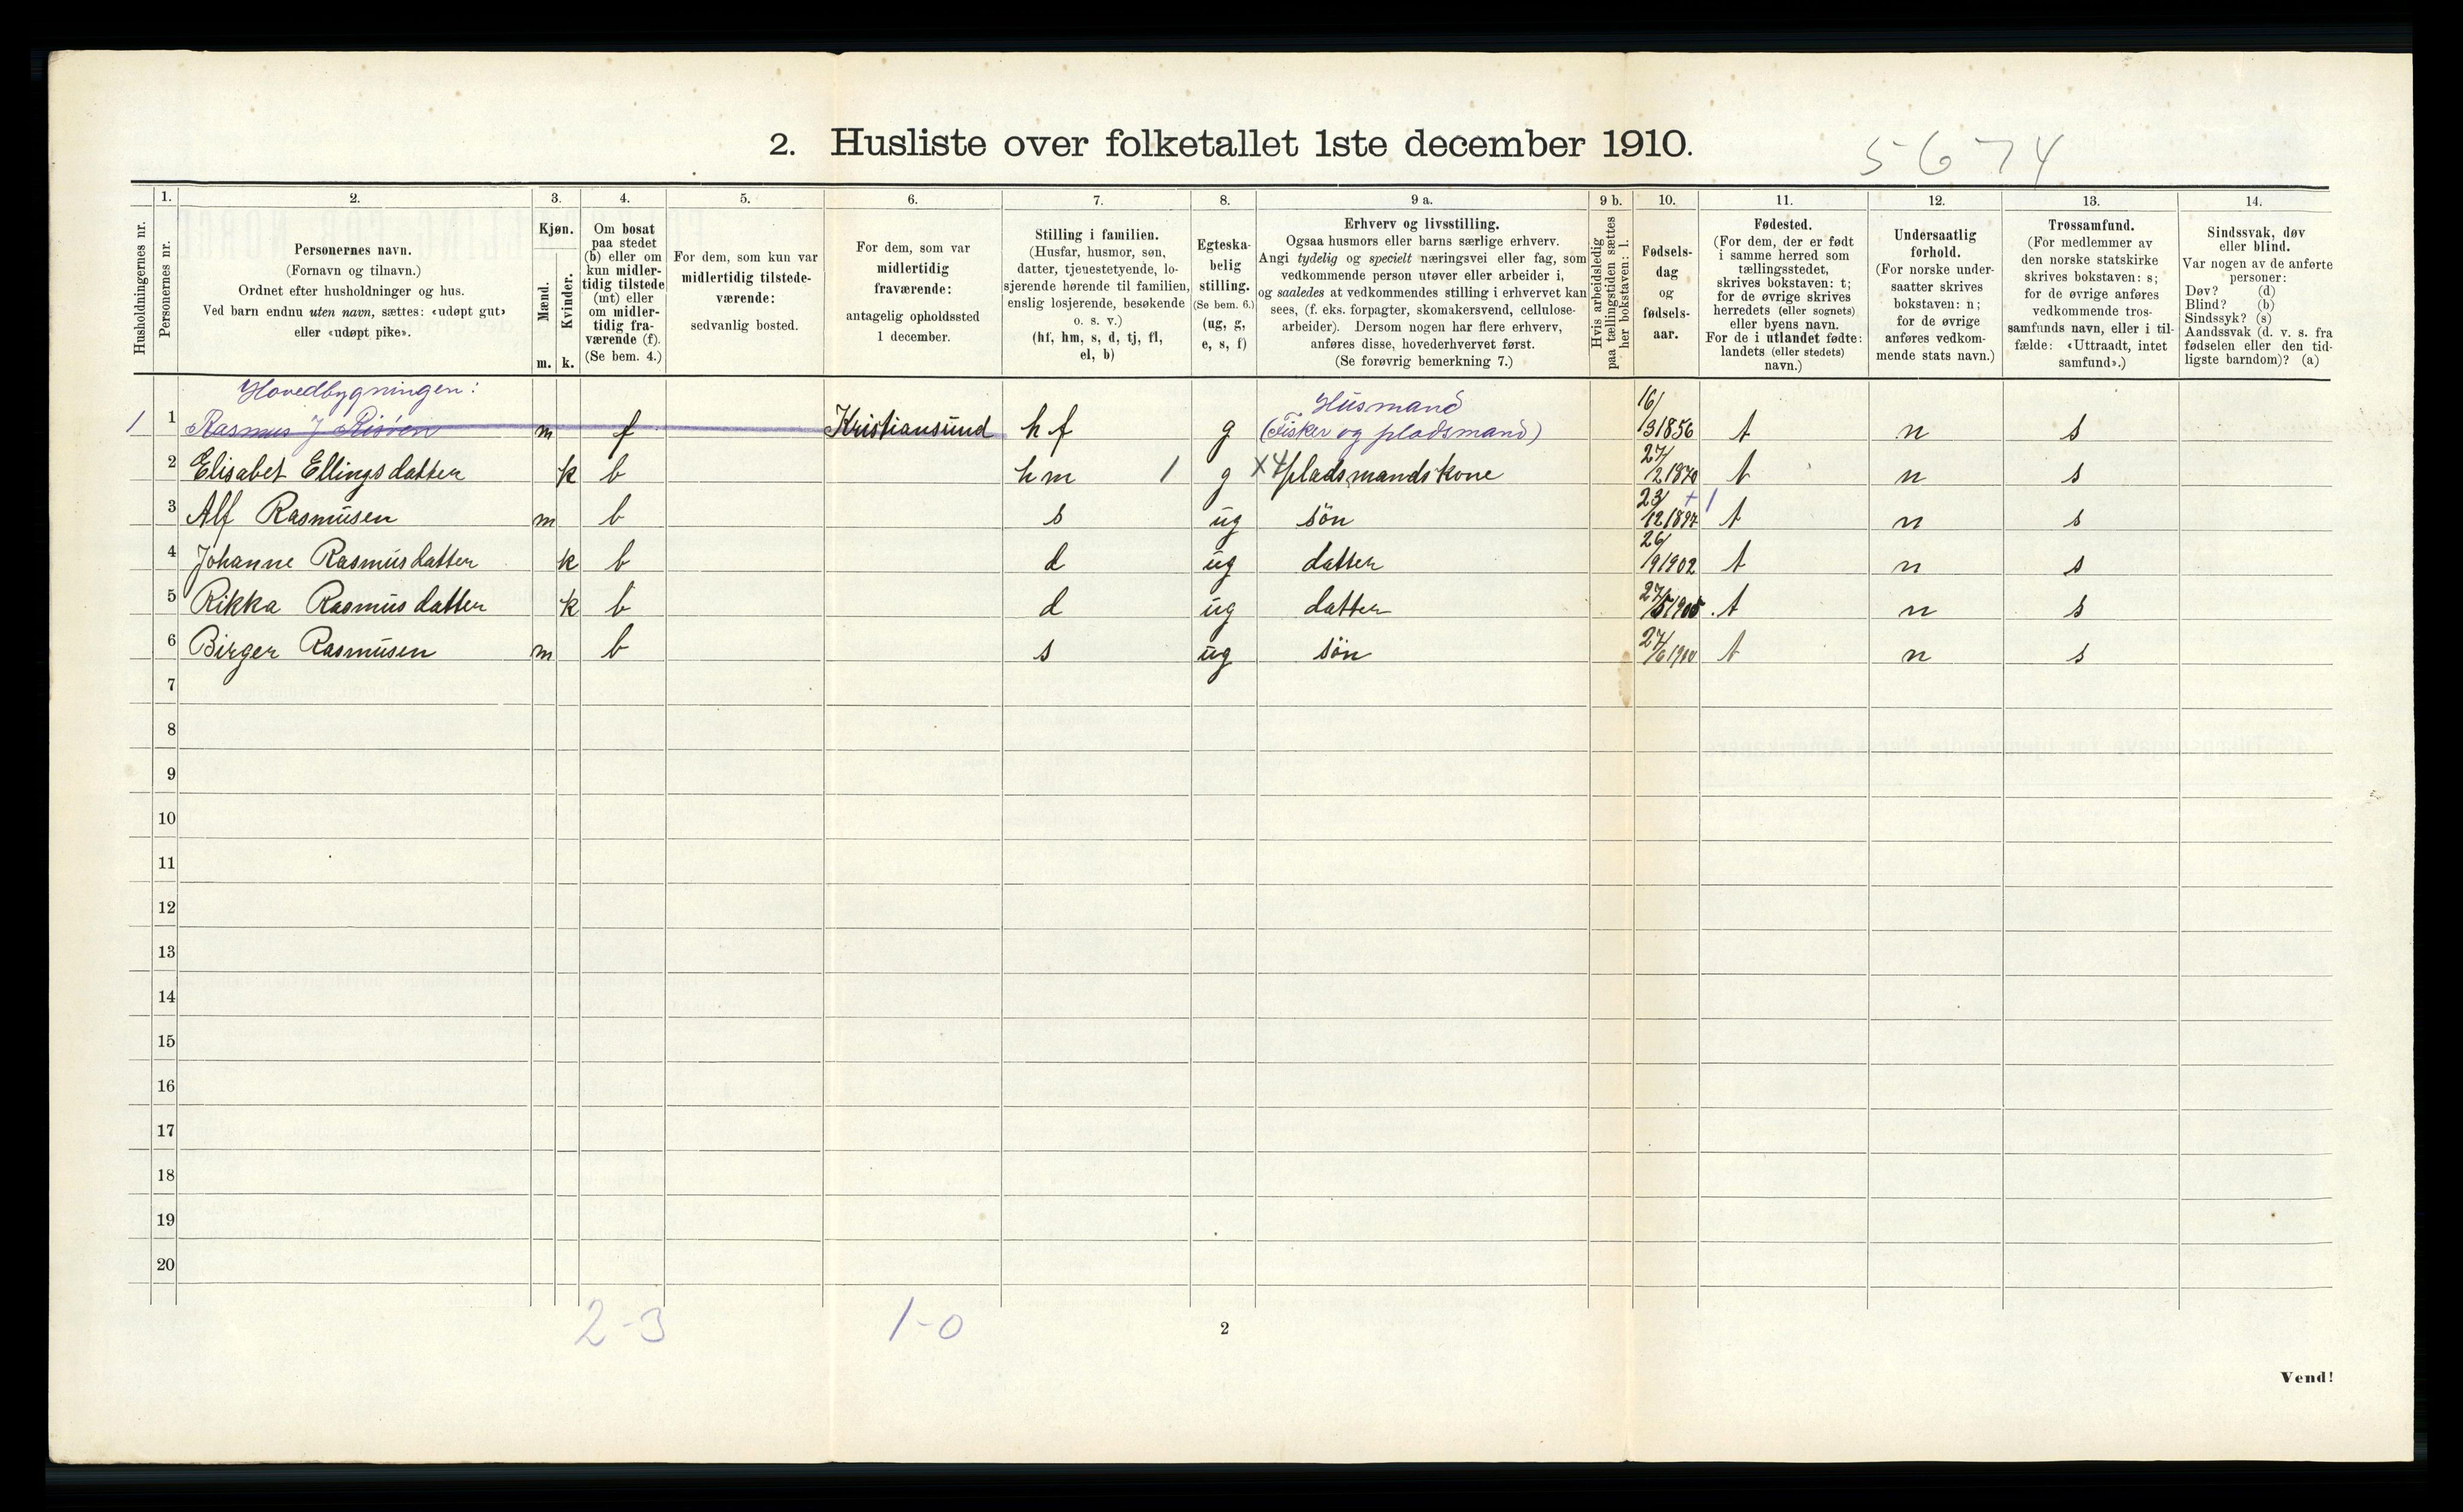 2. Husliste over folketallet 1ste december 1910.
5674
1. 2. 3. 4. 5. 6. 7. 8. 9 a. 9 b. 10. 11. 12. 13. 14.
Husholdningernes nr.
Personernes nr.
Personernes navn.
(Fornavn og tilnavn.)
Ordnet efter husholdninger og hus.
Ved barn endnu uten navn, sættes: «udøpt gut»
eller «udøpt pike».
Kjøn.
Mænd.
Kvinder.
m. k.
Om bosat
paa stedet
(b) eller om
kun midler-
tidig tilstede
(mt) eller
om midler-
tidig fra-
værende (f).
(Se bem. 4.)
For dem, som kun var
midlertidig tilstede-
værende:
sedvanlig bosted.
For dem, som var
midlertidig
fraværende:
antagelig opholdssted
1 december.
Stilling i familien.
(Husfar, husmor, søn,
datter, tjenestetyende, lo-
sjerende hørende til familien,
enslig losjerende, besøkende
o. s. v.)
(hf, hm, s, d, tj, fl,
el, b)
Egteska-
belig
stilling.
(Se bem. 6.)
(ug, g,
e, s, f)
Erhverv og livsstilling.
Ogsaa husmors eller barns særlige erhverv.
Angi tydelig og specielt næringsvei eller fag, som
vedkommende person utøver eller arbeider i,
og saaledes at vedkommendes stilling i erhvervet kan
sees, (f. eks. forpagter, skomakersvend, cellulose-
arbeider). Dersom nogen har flere erhverv,
anføres disse, hovederhvervet først.
(Se forøvrig bemerkning 7.)
Hvis arbeidsledig
paa tællingstiden sættes
her bokstaven: l.
Fødsels-
dag
og
fødsels-
aar.
Fødested.
(For dem, der er født
i samme herred som
tællingsstedet,
skrives bokstaven: t;
for de øvrige skrives
herredets (eller sognets)
eller byens navn.
For de i utlandet fødte:
landets (eller stedets)
navn.)
Undersaatlig
forhold.
(For norske under-
saatter skrives
bokstaven: n;
for de øvrige
anføres vedkom-
mende stats navn.)
Trossamfund.
(For medlemmer av
den norske statskirke
skrives bokstaven: s;
for de øvrige anføres
vedkommende tros-
samfunds navn, eller i til-
fælde: «Uttraadt, intet
samfund».)
Sindssvak, døv
eller blind.
Var nogen av de anførte
personer:
Døv? (d)
Blind? (b)
Sindssyk? (s)
Aandssvak (d. v. s. fra
fødselen eller den tid-
ligste barndom)? (a)
Hovedbygningen: Husmand
1 1 Rasmus J m f Kristiansund hf g (Fisker og pladsmand) 16/3 1856 t n s
2 Elisabet Ellingsdatter k b hm 1 g X4 pladsmandskone 27/2 1870 t n s
3 Alf Rasmusen m b s ug sön 23/12 1897 + 1 t n s
4 Johanne Rasmusdatter k b d ug datter 26/9 1902 t n s
5 Rikka Rasmusdatter k b d ug datter 27/5 1905 t n s
6 Birger Rasmusen m b s ug sön 27/6 1910 t n s
7
8
9
10
11
12
13
14
15
16
17
18
19
20
2-3 1-0
2
Vend!